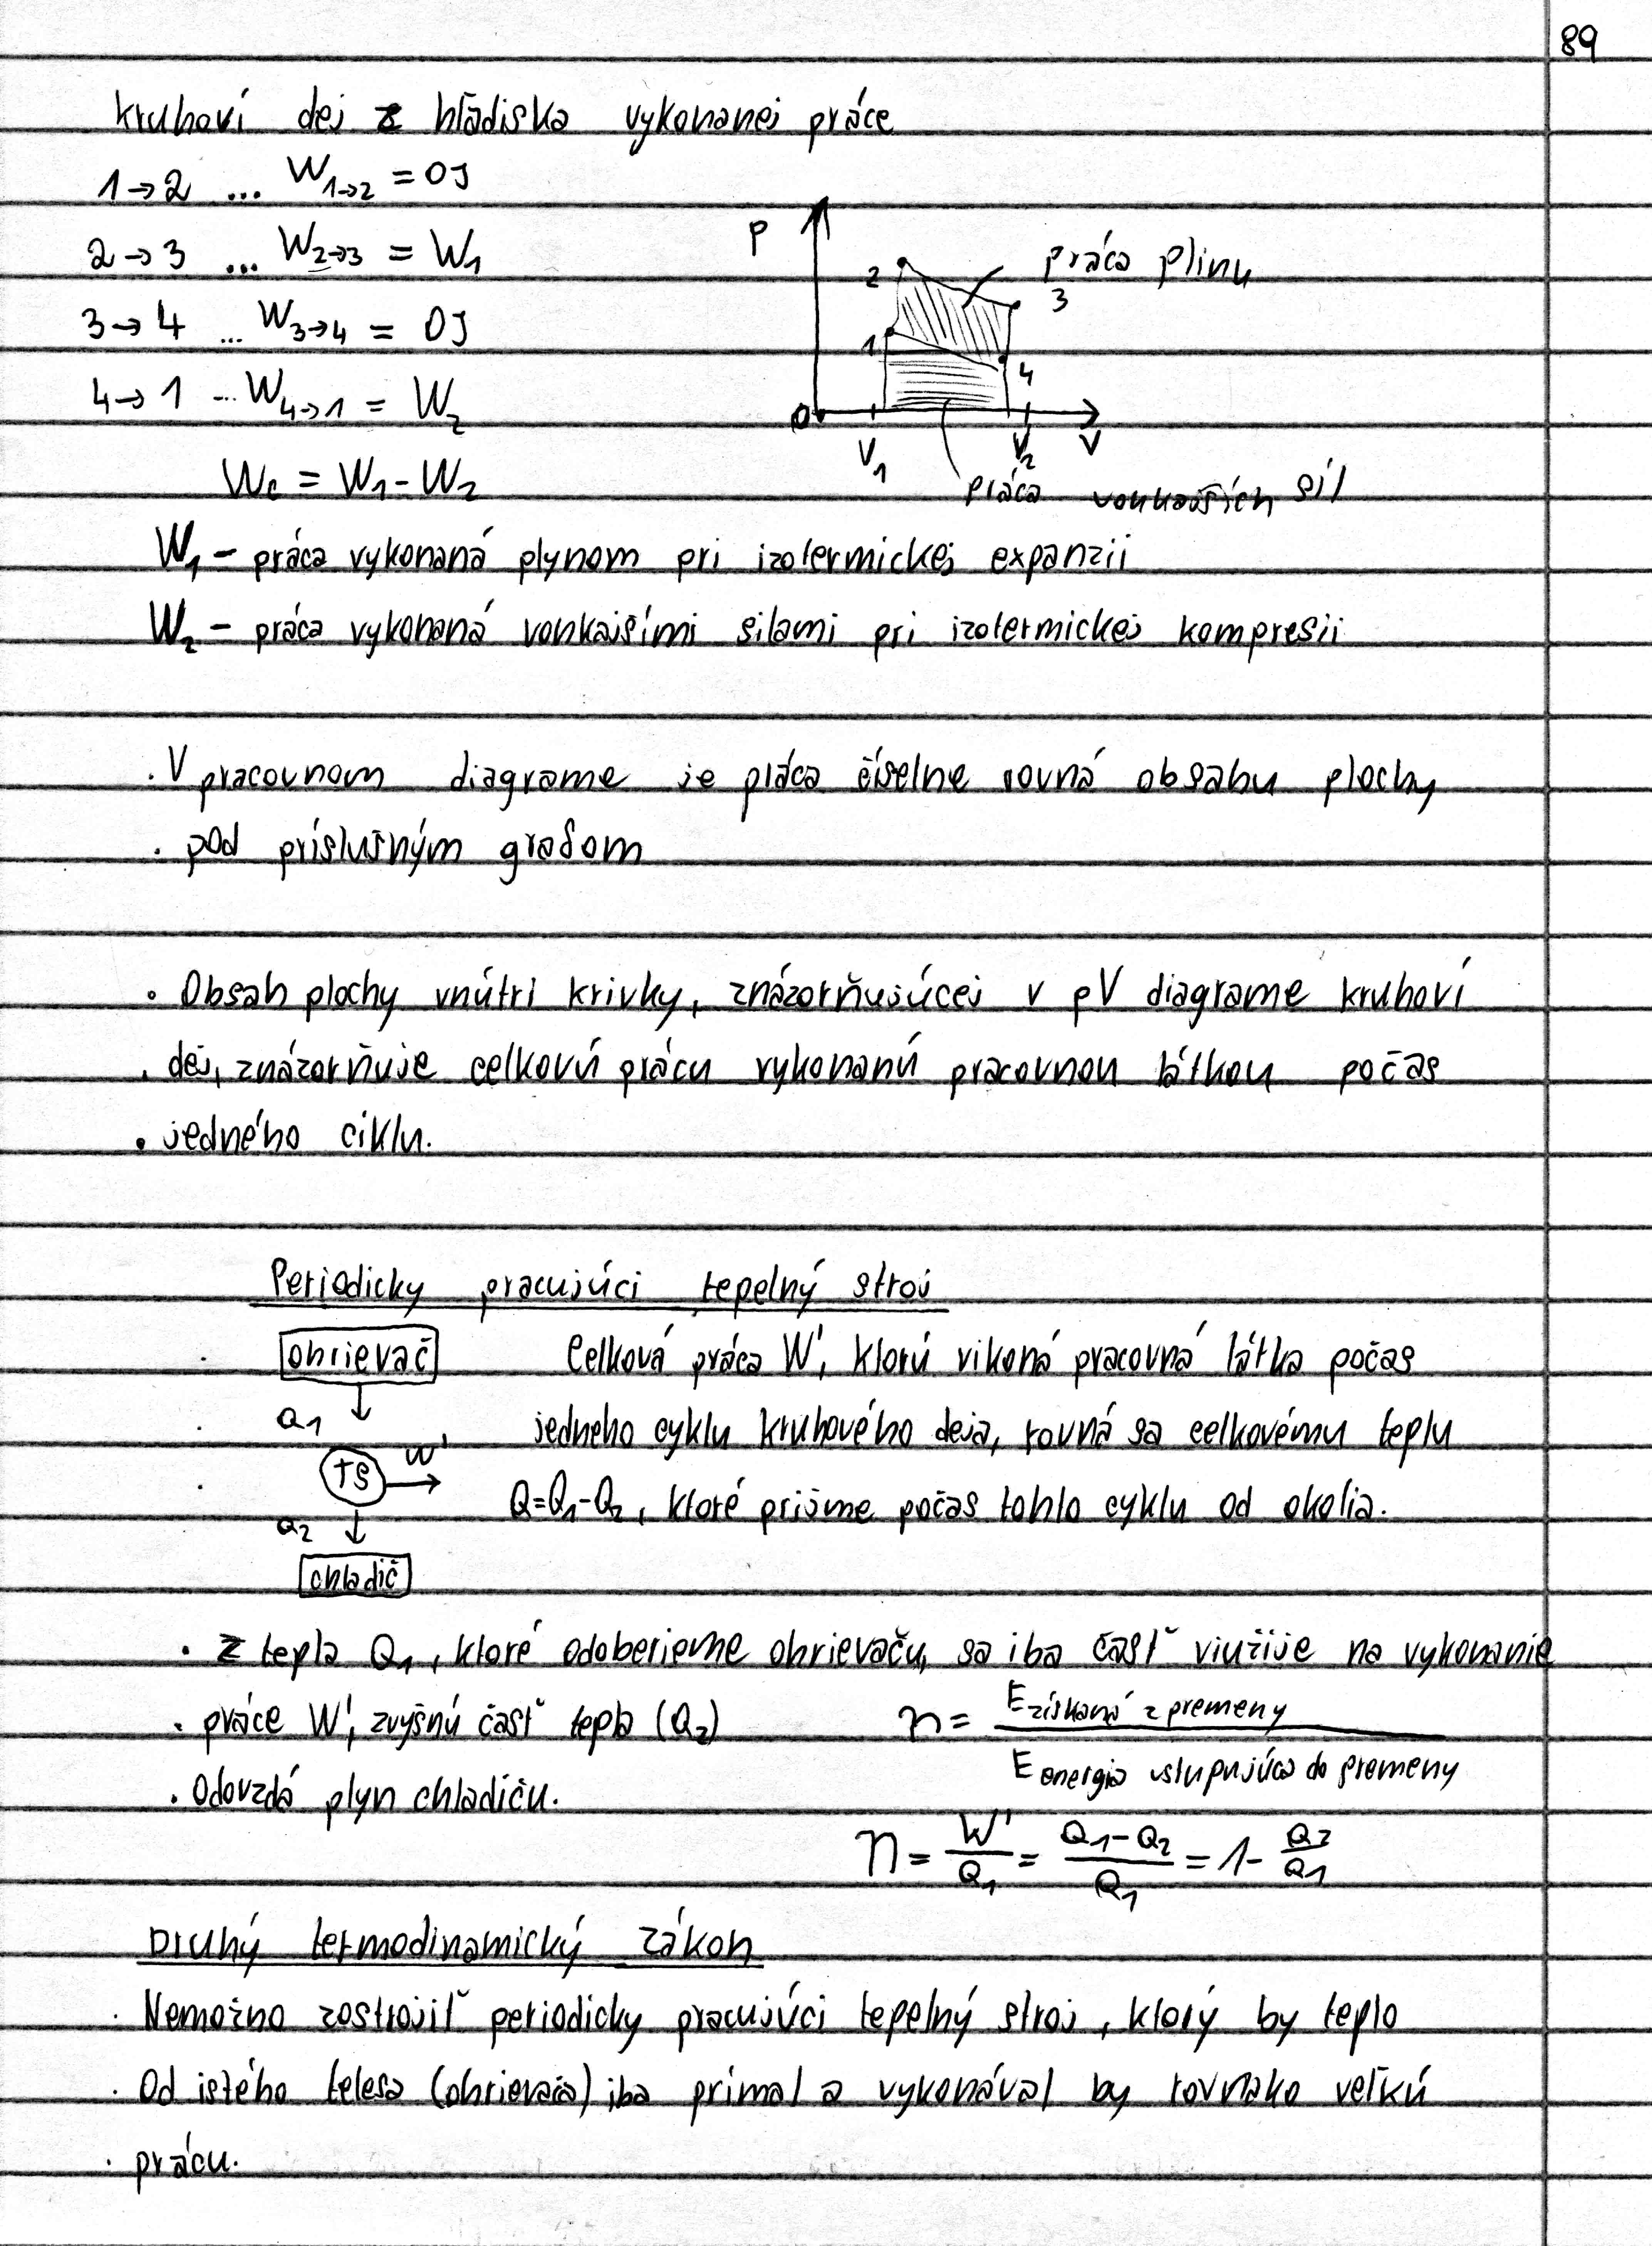 89
kruhoví dej z hľadiska vykonanej práce
1→2 ... W1→2 = 0J
2→3 ... W2→3 = W1
3→4 ... W3→4 = 0J
4→1 ... W4→1 = W2
Wc = W1 - W2
p
2
práca plinu
3
1
4
0
V1
V2
V
práca vonkajších síl
W1 – práca vykonaná plynom pri izotermickej expanzii
W2 – práca vykonaná vonkajšími silami pri izotermickej kompresii
. V pracovnom diagrame je práca číselne rovná obsahu plochy
. pod príslušným grafom
. Obsah plochy vnútri krivky, znázorňujúcej v pV diagrame kruhoví
. dej, znázorňuje celkovú prácu vykonanú pracovnou látkou počas
. jedného ciklu.
Periodicky pracujúci tepelný stroj
ohrievač
Q1
TS
W'
Q2
chladič
Celková práca W', ktorú vikoná pracovná látka počas
jedneho cyklu kruhového deja, rovná sa celkovému teplu
Q=Q1-Q2, ktoré prijme počas tohto cyklu od okolia.
. z tepla Q1, ktoré odoberieme ohrievaču, sa iba časť viužije na vykonanie
. práce W', zvyšnú časť tepla (Q2)
. Odovzdá plyn chladiču.
η = Ezískaná z premeny / Eenergia vstupujúca do premeny
η = W'/Q1 = (Q1-Q2)/Q1 = 1 - Q2/Q1
Druhý termodinamický zákon
. Nemožno zostrojiť periodicky pracujúci tepelný stroj, ktorý by teplo
. Od istého telesa (ohrievača) iba primal a vykonával by rovnako veľkú
. prácu.